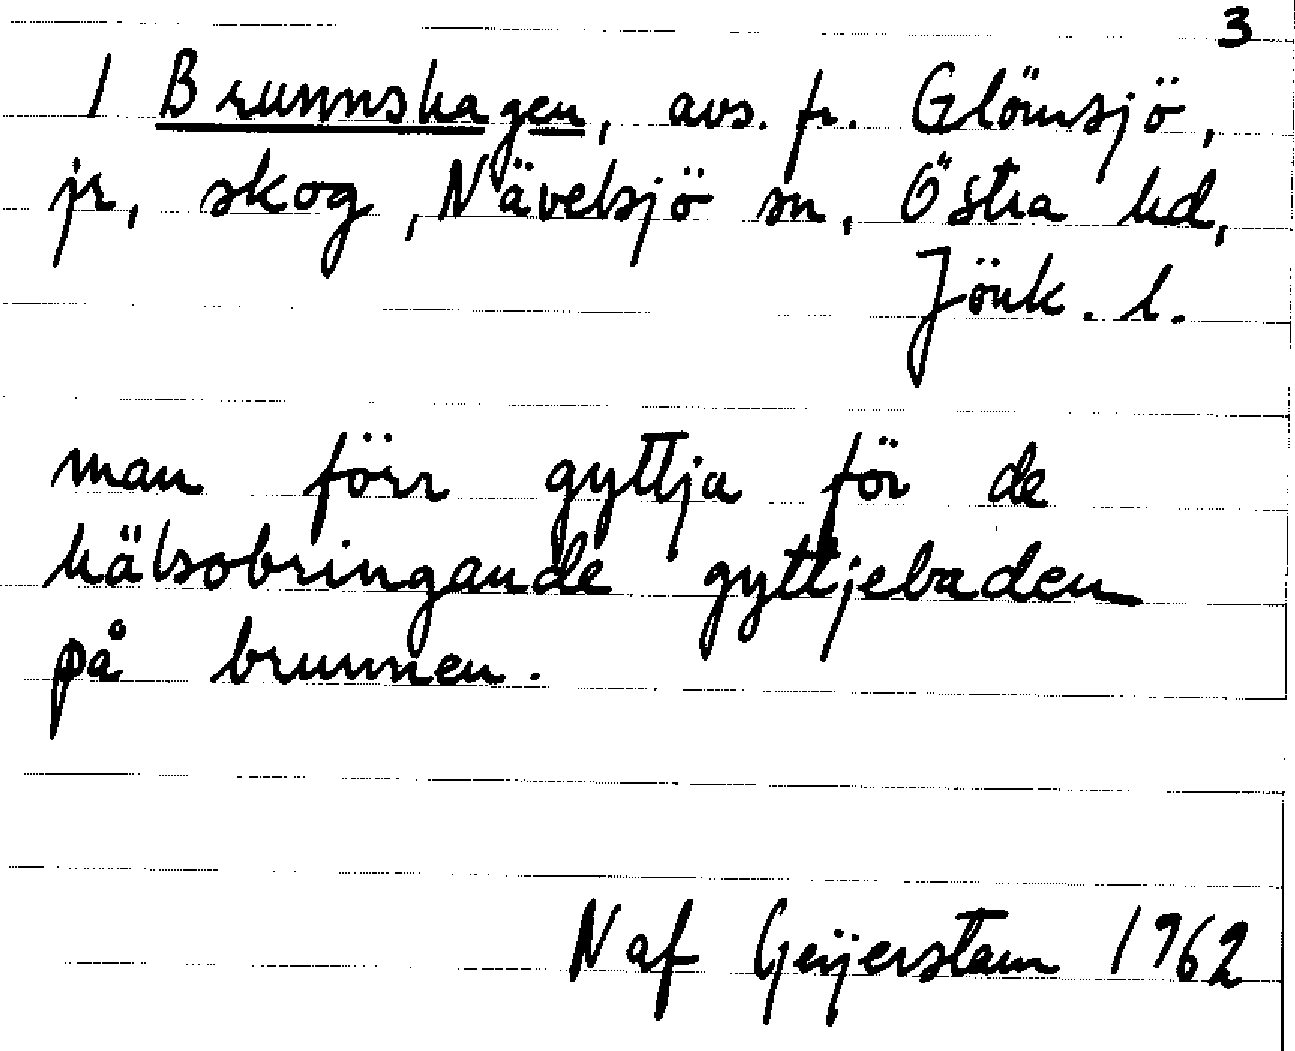 3
1 Brunnshagen, avs. fr. Glömsjö,
jr, skog, Nävelsjö sn, Östra hd,
Jönk. l.
man förr gyttja för de
hälsobringande gyttjebaden
på brunnen.
N af Geijerstam 1962